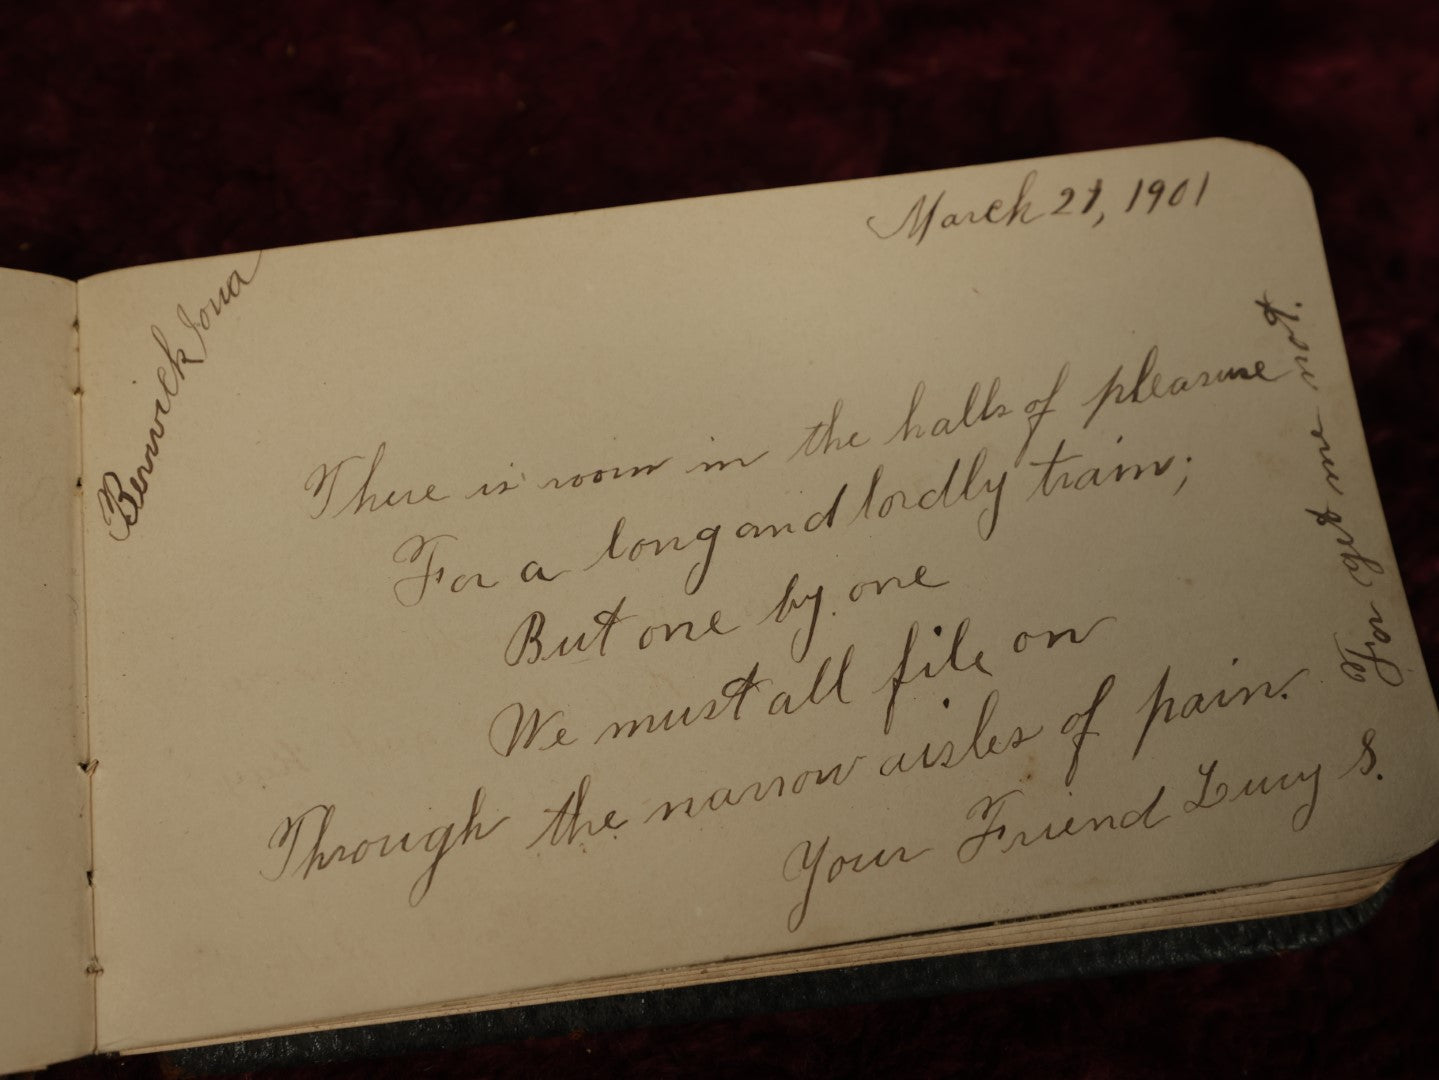 March 21, 1901
Berwick Iowa
There is room in the halls of pleasure
For a long and lordly train;
But one by one
We must all file on
Through the narrow aisles of pain.
Your Friend Lucy S.
For get me not.